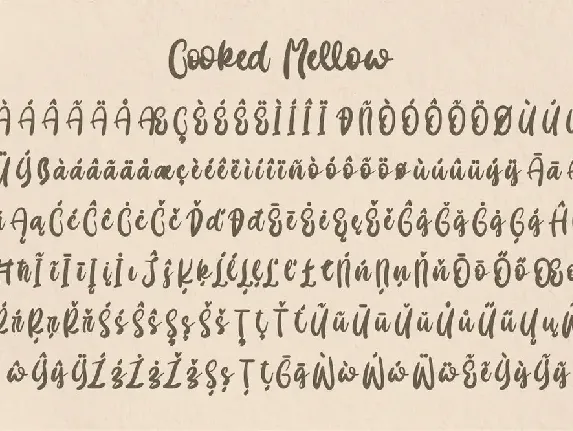 Cooked Mellow
À Á Â Ã Ä Å Æ Ç È É Ê Ë Ì Í Î Ï Ð Ñ Ò Ó Ô Õ Ö Ø Ù Ú
Ü Ý ß à á â ã ä å æ ç è é ê ë ì í î ï ñ ò ó ô õ ö ø ù ú û ü ý ÿ Ā ā
Ą ą Ć ć Ĉ ĉ Ċ ċ Č č Ď ď Đ đ Ē ē Ė ė Ę ę Ě ě Ĝ ĝ Ğ ğ Ġ ġ Ģ ģ Ĥ
Ħ ħ Ĩ ĩ Ī ī Į į İ ı Ĵ ĵ Ķ ķ Ĺ ĺ Ļ ļ Ľ ľ Ł ł Ń ń Ņ ņ Ň ň Ō ō Ő ő Œ
Ŕ ŕ Ŗ ŗ Ř ř Ś ś Ŝ ŝ Ş ş Š š Ţ ţ Ť ť Ũ ũ Ū ū Ŭ ŭ Ů ů Ű ű Ų ų
ŵ Ŷ ŷ Ÿ Ź ź Ż ż Ž ž Ș ș Ț ț Ḡ ḡ Ẁ ẁ Ẃ ẃ Ẅ ẅ Ẽ ẽ Ỳ ỳ Ỹ ỹ